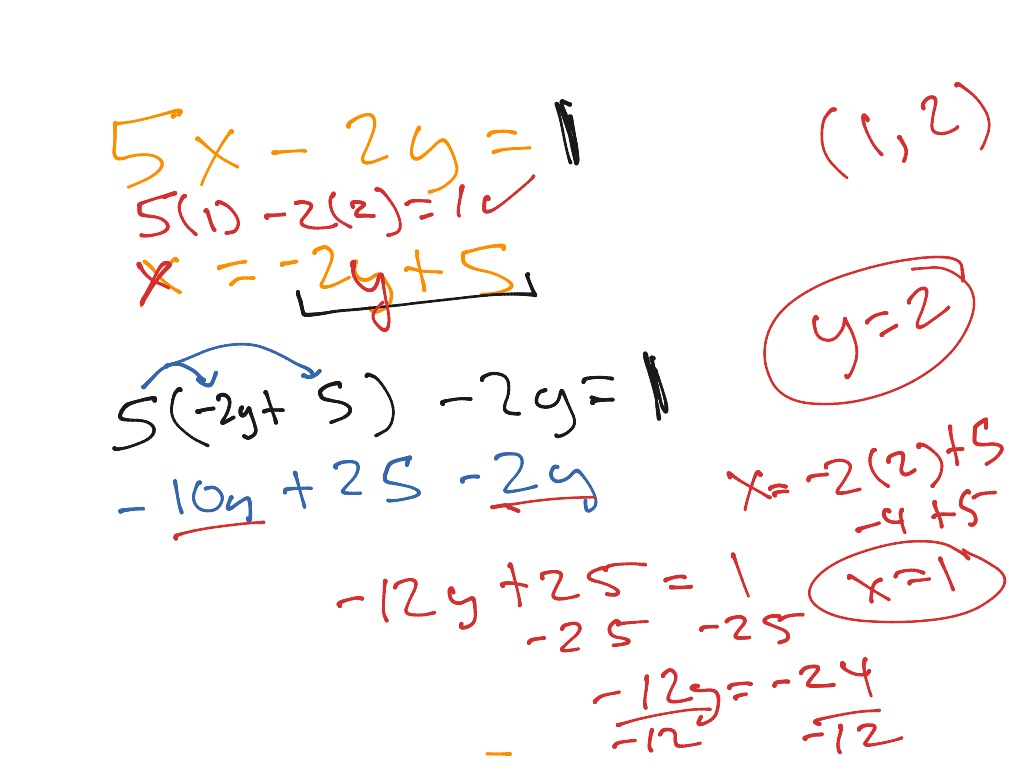 5x - 2y = 1
(1, 2)
5(1) - 2(2) = 1 ✓
x = -2y + 5
y = 2
5(-2y + 5) - 2y = 1
-10y + 25 - 2y
x = -2(2) + 5
-4 + 5
x = 1
-12y + 25 = 1
-25 -25
-12y = -24
-12 -12